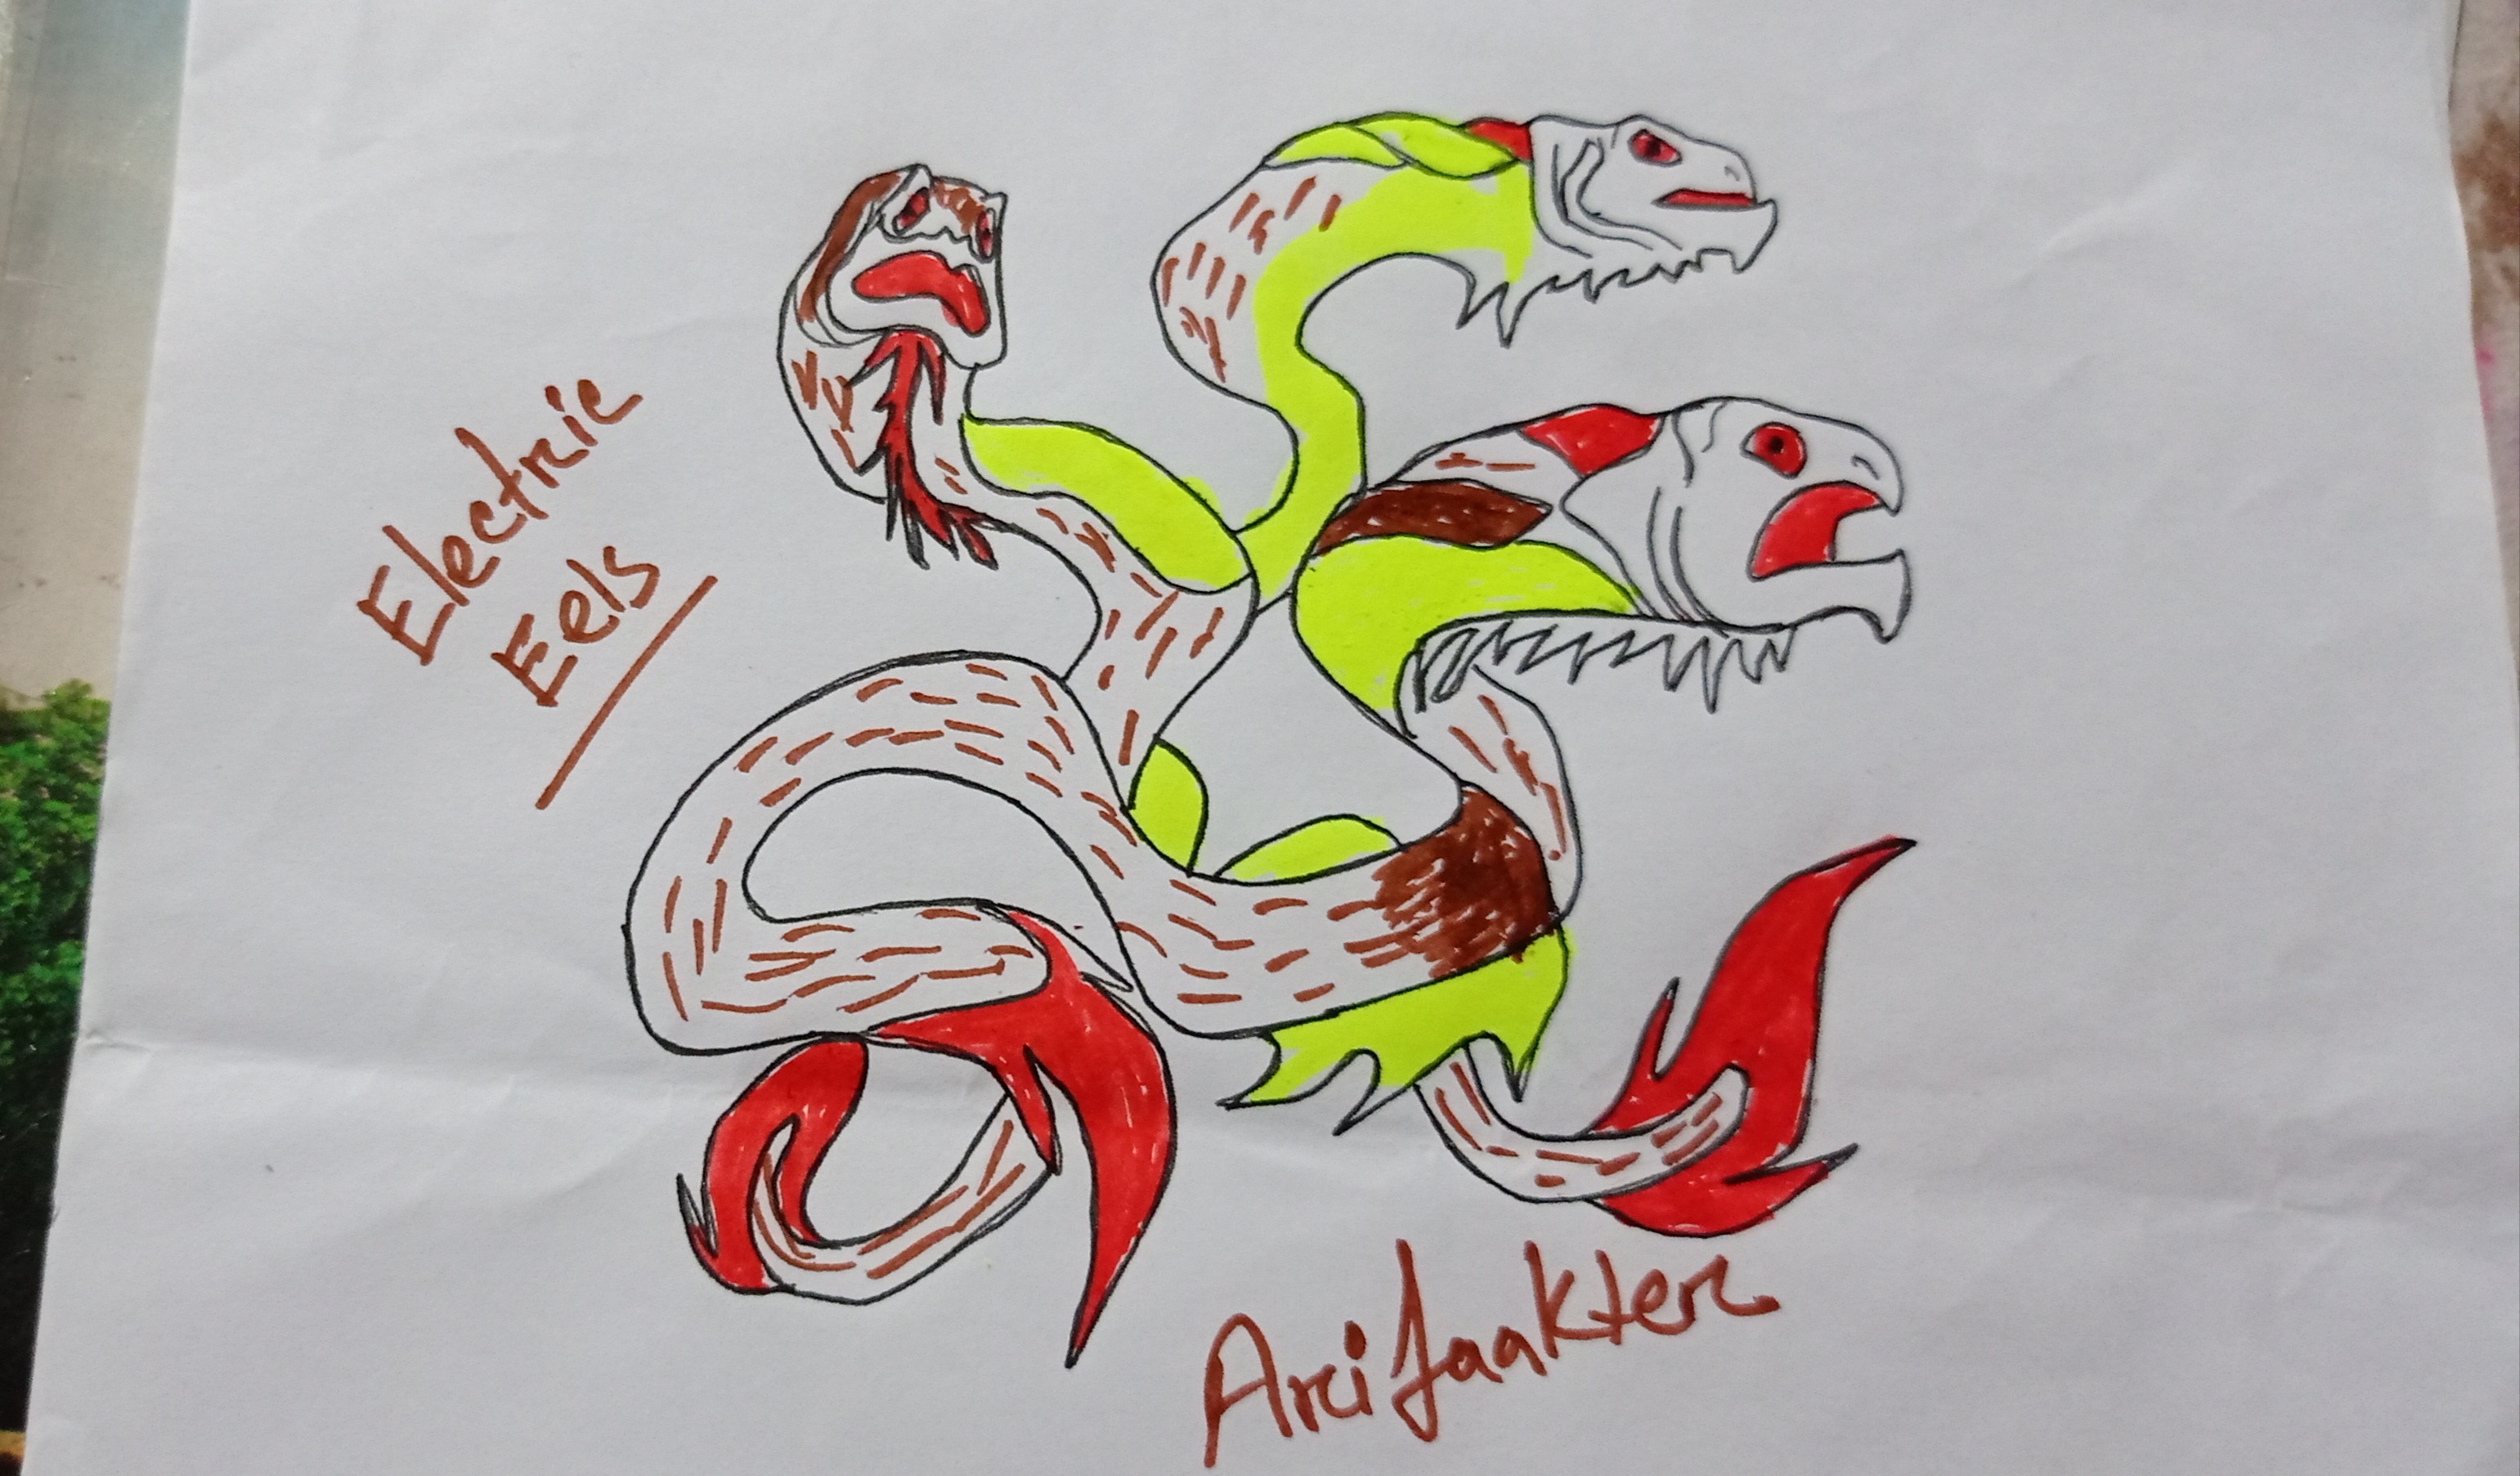 Electric
Eels
Arifaakter